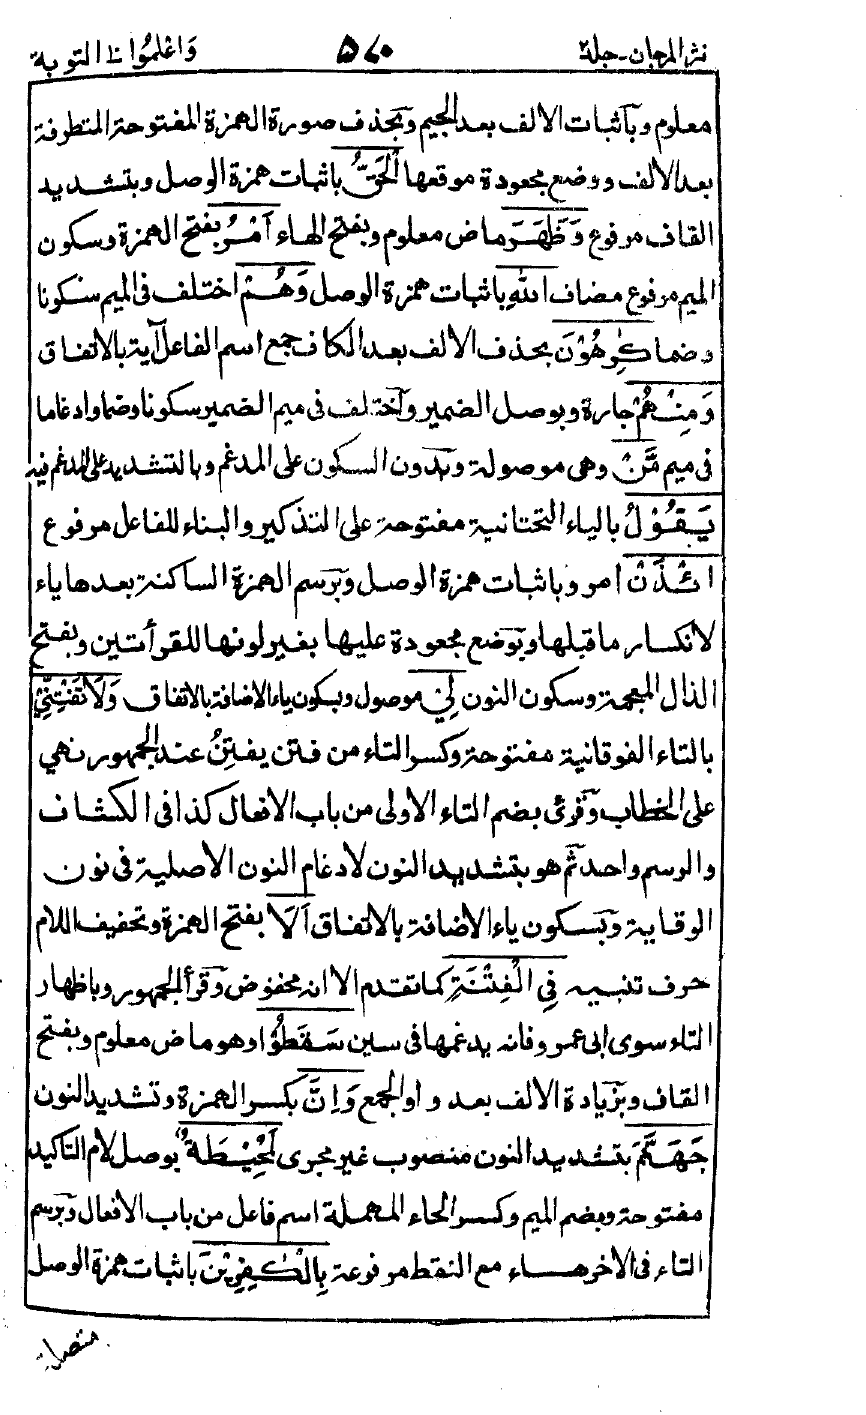 نثر المرجان ـ جلد ٢ ٥٧٠ واعلموا ١٠ التوبة
معلوم وبآثبات الالف بعد الجيم وبحذف صورة الهمزة المفتوحة المتطرفة
بعد الالف ووضع مجعودة موقعها اَلْحَقُّ باثبات همزة الوصل وبتشديد
القاف مرفوع وَظَهَرَ ماض معلوم وبفتح الهاء اَمْرُ بفتح الهمزة وسكون
الميم مرفوع مضاف اللهِ باثبات همزة الوصل وَهُمْ اختلف فى الميم سكونا
وضما كٰرِهُوْنَ بحذف الالف بعد الكاف جمع اسم الفاعل آية بالاتفاق
وَمِنْهُمْ جارة وبوصل الضمير واختلف فى ميم الضمير سكونا وضما وادغاما
فى ميم مَّنْ وهى موصولة وبدون السكون على المدغم وبالتشديد على المدغم فيه
يَقُوْلُ بالياء التحتانية مفتوحة على التذكير والبناء للفاعل مرفوع
ائْذَنْ امر وباثبات همزة الوصل وبرسم الهمزة الساكنة بعدها ياء
لانكسار ما قبلها وبوضع مجعودة عليها بغير لونها للقرأتين وبفتح
الذال المعجمة وسكون النون لِيْ موصول وبسكون ياء الاضافة بالاتفاق وَلَا تَفْتِنِّيْ
بالتاء الفوقانية مفتوحة وكسر التاء من فتن يفتِنُ عند الجمهور نهي
على الخطاب وقرئ بضم التاء الاولى من باب الافعال كذا فى الكشاف
والرسم واحد ثم هو بتشديد النون لادغام النون الاصلية فى نون
الوقاية وبسكون ياء الاضافة بالاتفاق اَلَا بفتح الهمزة وتخفيف اللام
حرف تنبيه فِي الْفِتْنَةِ كما تقدم الا انه مخفوض وقرأ الجمهور باظهار
التاء سوى ابى عمرو فانه يدغمها فى سين سَقَطُوْا وهو ماض معلوم وبفتح
القاف وبزيادة الالف بعد واو الجمع وَاِنَّ بكسر الهمزة وتشديد النون
جَهَنَّمَ بتشديد النون منصوب غير مجرى لَمُحِيْطَةٌ بوصل لام التاكيد
مفتوحة وبضم الميم وكسر الحاء المهملة اسم فاعل من باب الافعال وبرسم
التاء فى الاخر هاء مع النقط مرفوعة بِالْكٰفِرِيْنَ باثبات همزة الوصل
متصلة